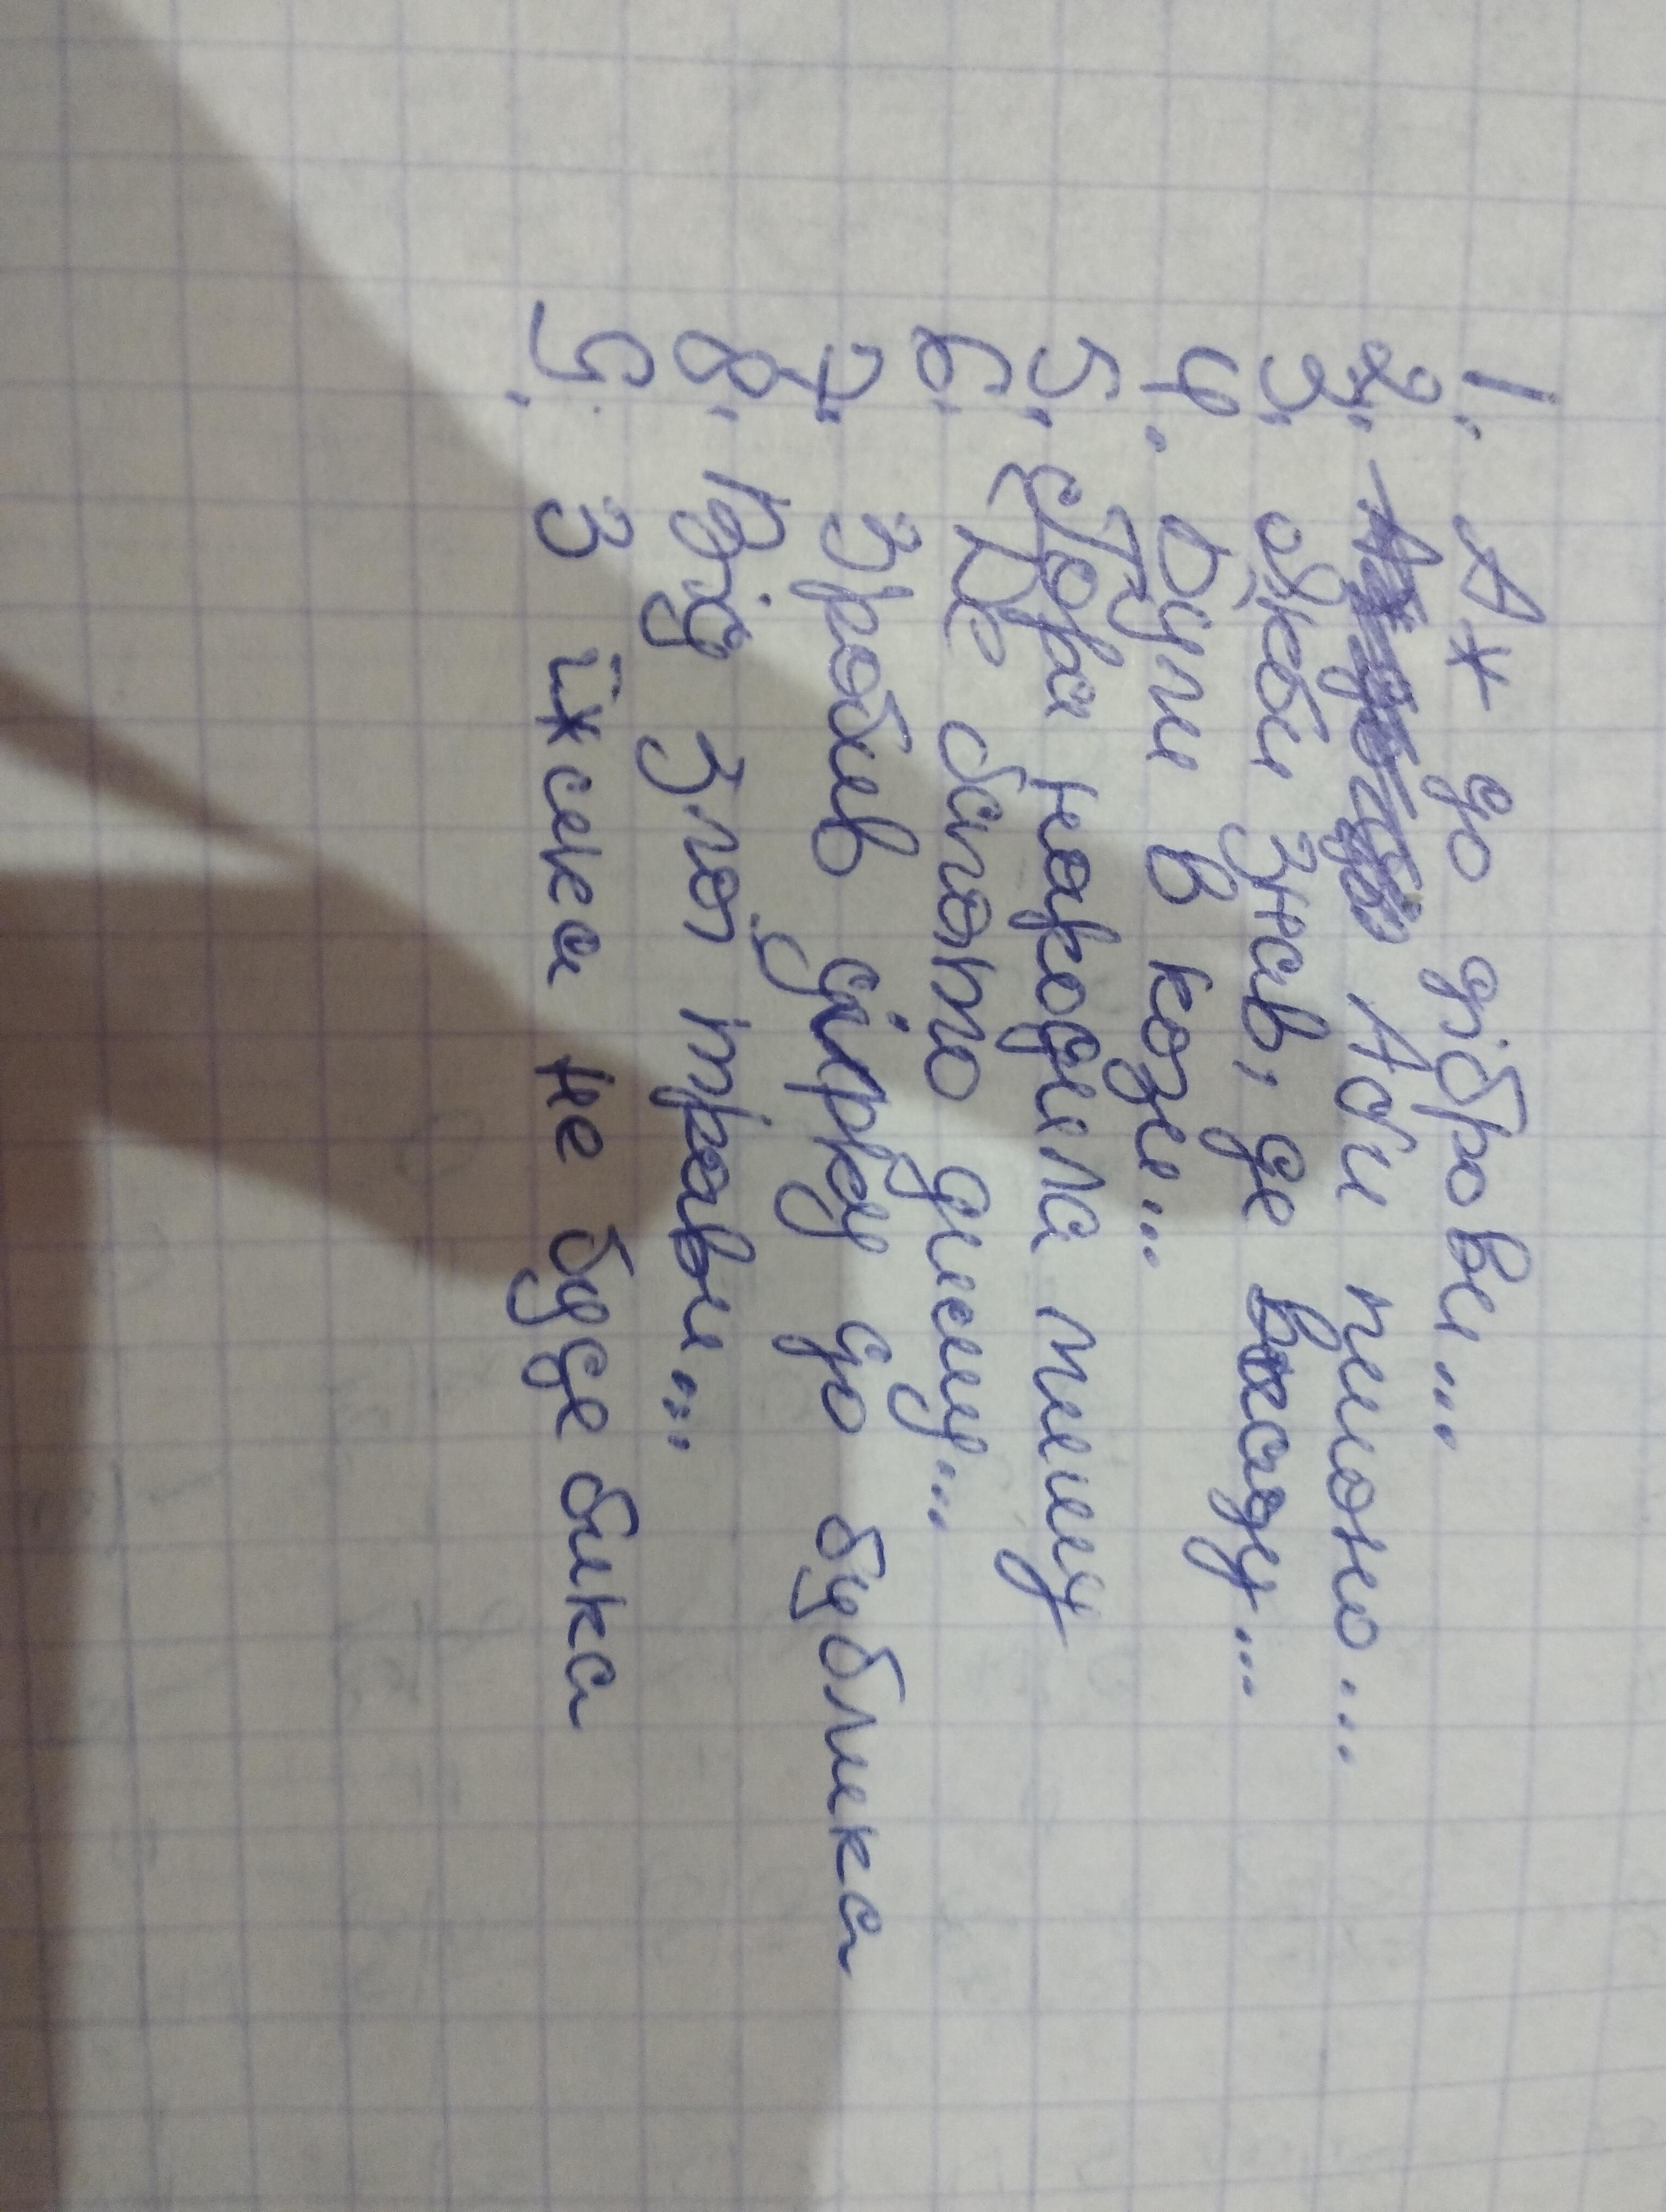 1. Аж до діброви...
2. Аби пшоно...
3. Якби знав, де впаду...
4. Були в кози...
5. Гора народила мишу
6. Де багато диму...
7. Зробив дірку до бублика
8. Від злої трави...
9. З їжака не буде бика